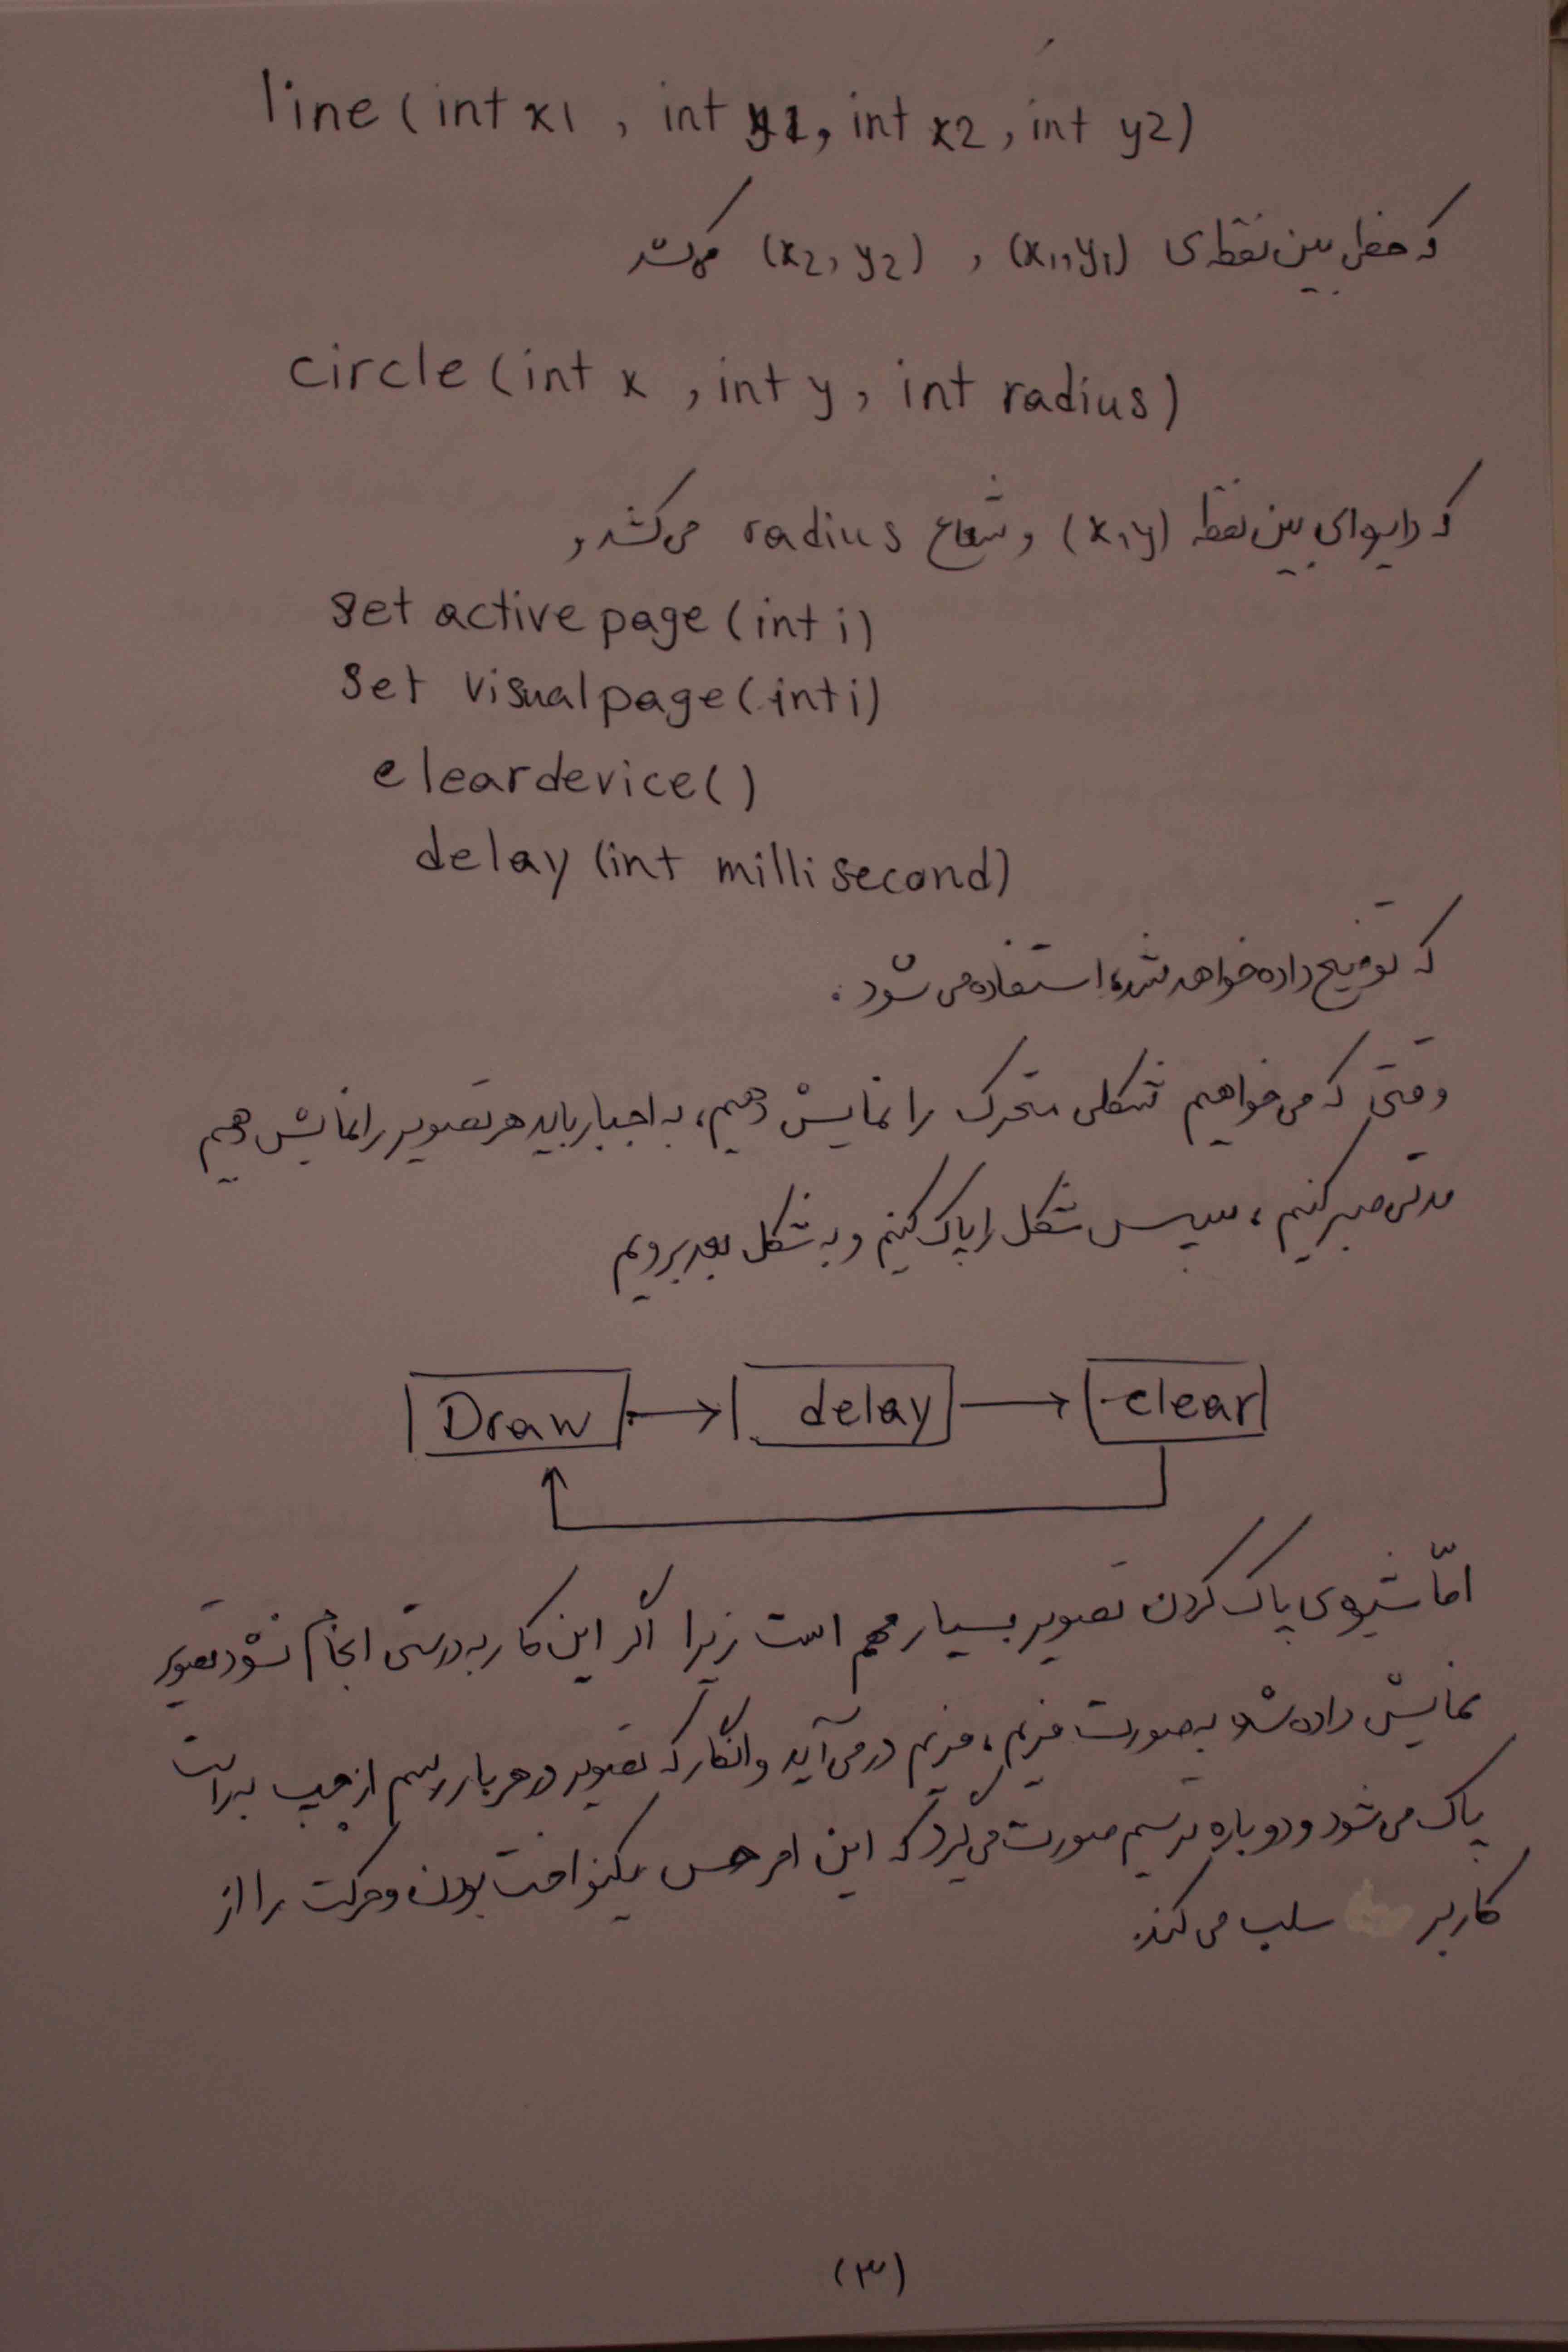 line (int x1 , int y1, int x2, int y2)
که خطی بین نقطه‌ی (x1,y1) , (x2, y2) می‌کشد
circle (int x , int y, int radius)
که دایره‌ای بین نقطه (x,y) و شعاع radius می‌کشد و
set active page (int i)
set visual page (int i)
cleardevice()
delay (int milli second)
که توضیح داده خواهد شد، استفاده می شود .
وقتی که می خواهیم شکلی متحرک را نمایش دهیم، به اجبار باید هر تصویر را نمایش دهیم
مدتی صبر کنیم ، سپس شکل را پاک کنیم و به شکل بعد برویم
Draw → delay → clear
امّا شیوه‌ی پاک کردن تصویر بسیار مهم است زیرا اگر این کار به درستی انجام نشود تصویر
نمایش داده شده به صورت فریم ، فریم در می آید و انگار که تصویر در هر بار رسم از چپ به راست
پاک می شود و دوباره ترسیم صورت می گیرد که این امر حس یکنواخت بودن و حرکت را از
کاربر سلب می کند.
(۳)